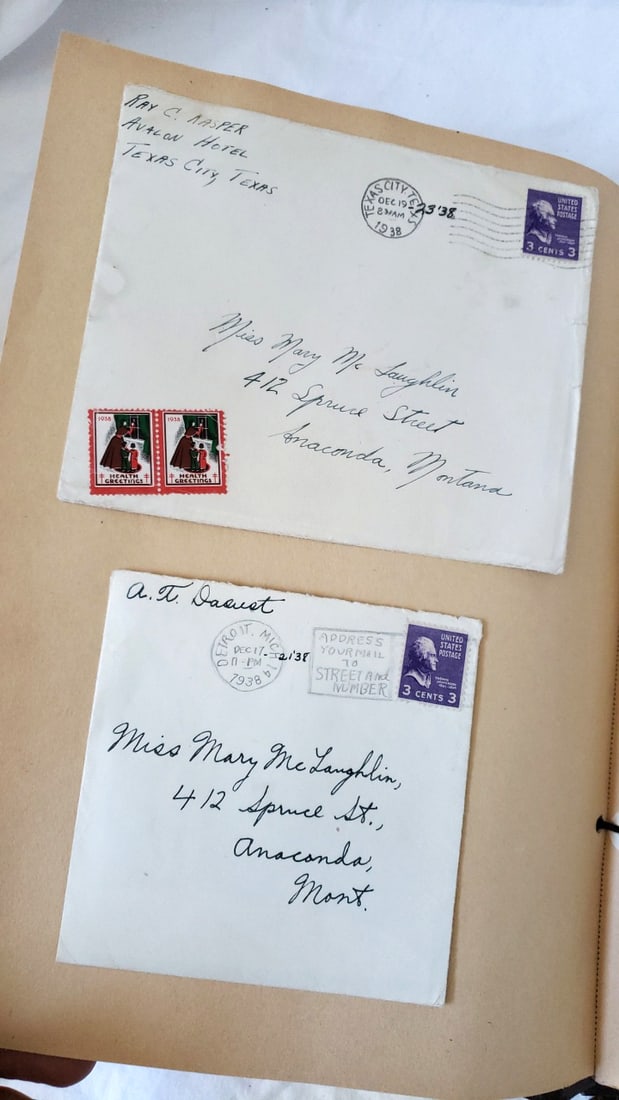 RAY C. KASPER
AVALON HOTEL
TEXAS CITY, TEXAS
TEXAS CITY, TEXAS
DEC 19
8 30 AM
1938
-23'38
UNITED
STATES
POSTAGE
3 CENTS 3
Miss Mary Mc Laughlin
412 Spruce Street
Anaconda, Montana
1938
HEALTH
GREETINGS
1938
HEALTH
GREETINGS
A. T.
DETROIT, MICH. 14
DEC 17
11-PM
1938
-21'38
ADDRESS
YOUR MAIL
TO
STREET AND
NUMBER
UNITED
STATES
POSTAGE
3 CENTS 3
Miss Mary Mc Laughlin,
412 Spruce St.,
Anaconda,
Mont.